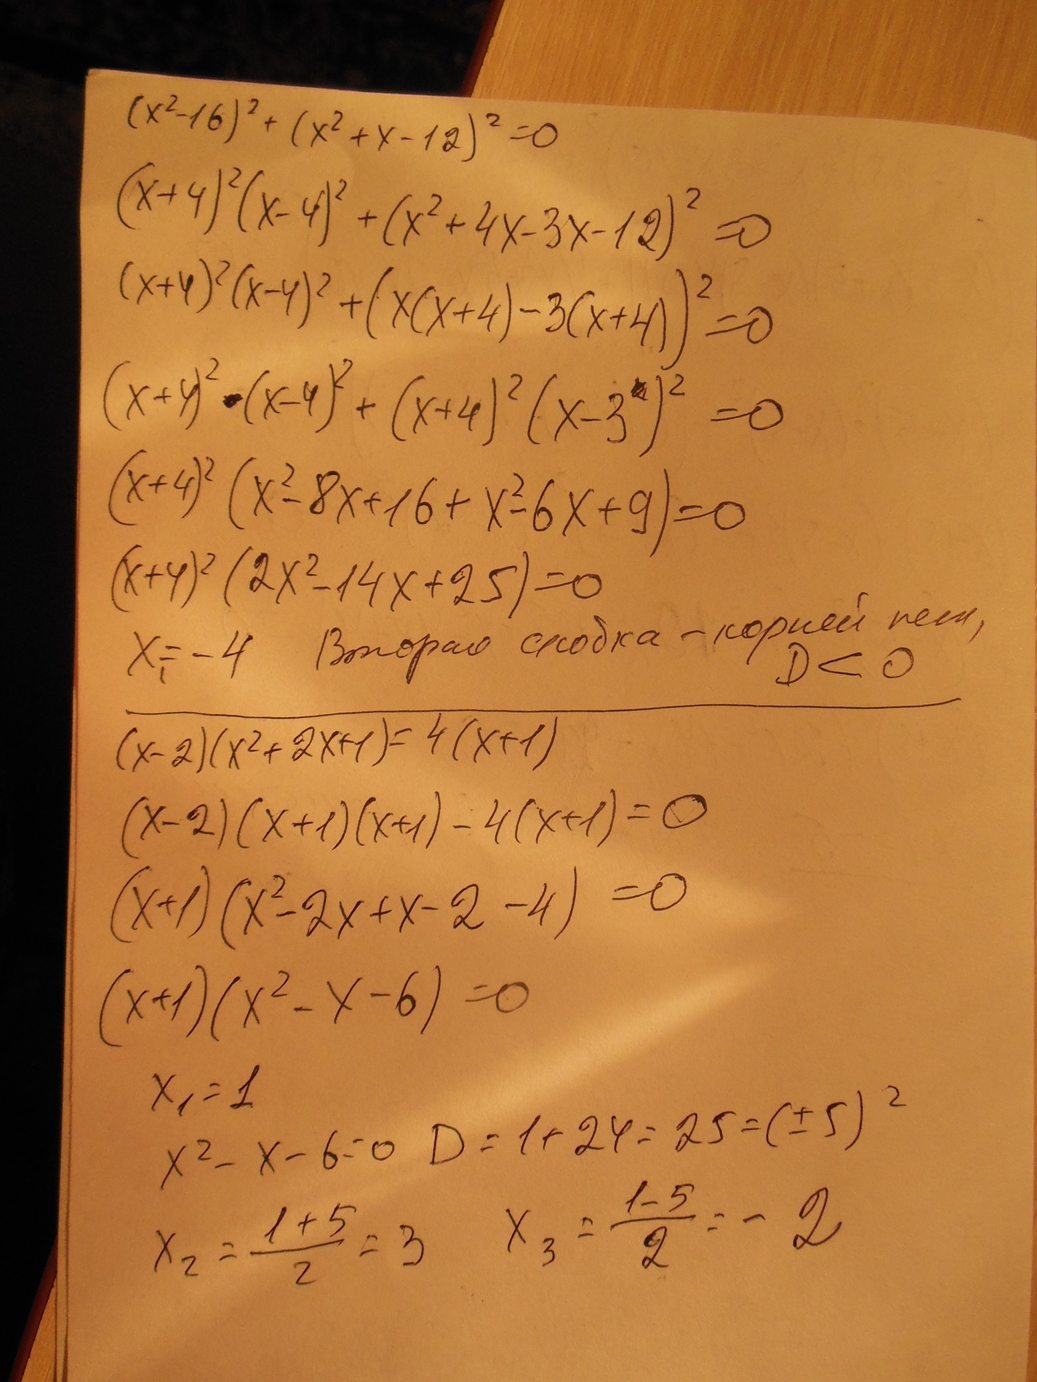 (x²-16)² + (x² + x - 12)² = 0
(x+4)²(x-4)² + (x² + 4x - 3x - 12)² = 0
(x+4)²(x-4)² + (x(x+4) - 3(x+4))² = 0
(x+4)² · (x-4)² + (x+4)² (x-3)² = 0
(x+4)² (x² - 8x + 16 + x² - 6x + 9) = 0
(x+4)² (2x² - 14x + 25) = 0
x₁ = -4 Вторая скобка - корней нет, D < 0
(x-2)(x² + 2x + 1) = 4(x+1)
(x-2)(x+1)(x+1) - 4(x+1) = 0
(x+1)(x² - 2x + x - 2 - 4) = 0
(x+1)(x² - x - 6) = 0
x₁ = 1
x² - x - 6 = 0 D = 1 + 24 = 25 = (±5)²
x₂ = (1+5)/2 = 3 x₃ = (1-5)/2 = -2